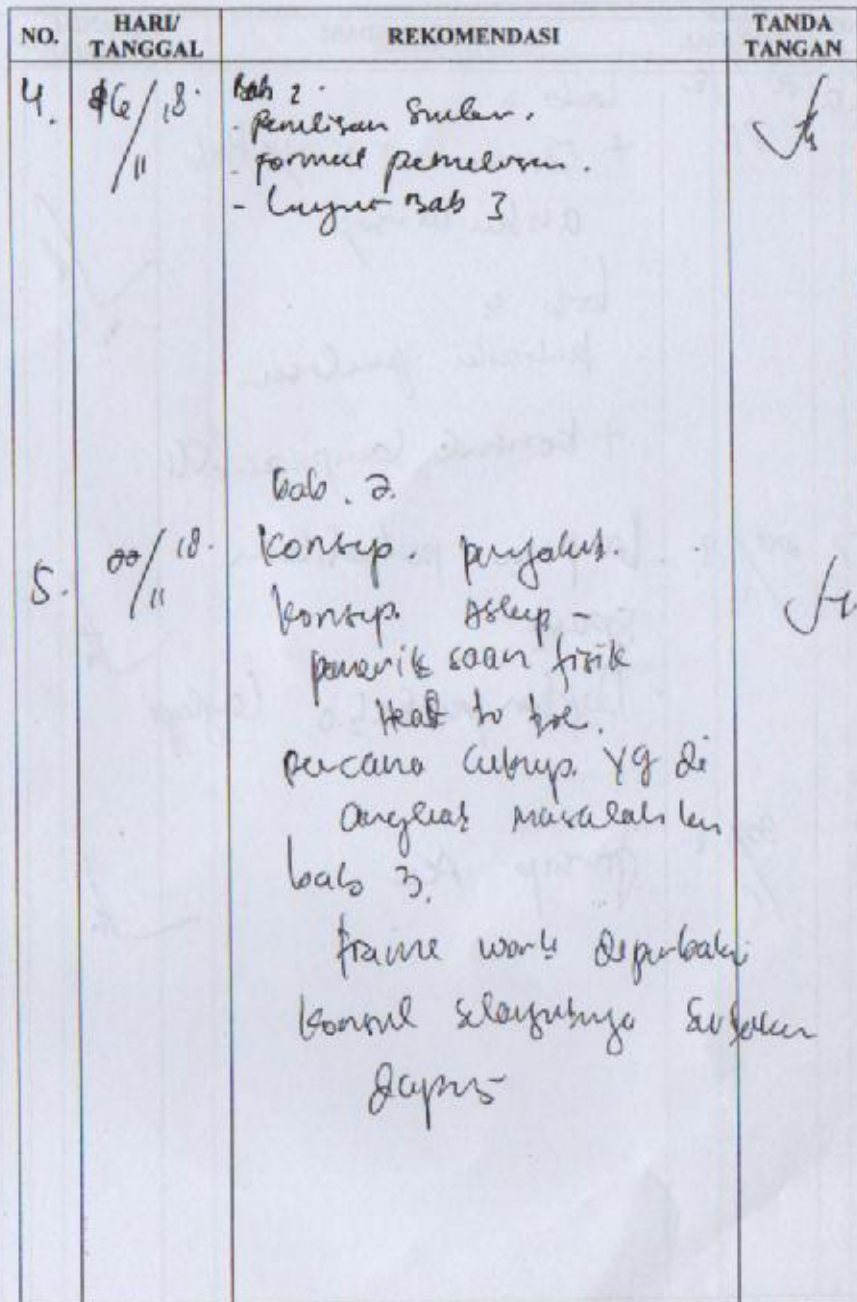 NO. HARI/ TANGGAL REKOMENDASI TANDA TANGAN
4. 6/11 18. Bab 2.
- Penulisan Sumber.
- Format penulisan.
- Lanjut Bab 3
bab. 2.
5. 20/11 18. Konsep. penyakit.
Konsep. Askep -
pemerik saan fisik
Head to toe.
yg di
angkat masalah kep
bab 3.
frame work diperbaiki
Konsul selanjutnya
dapus